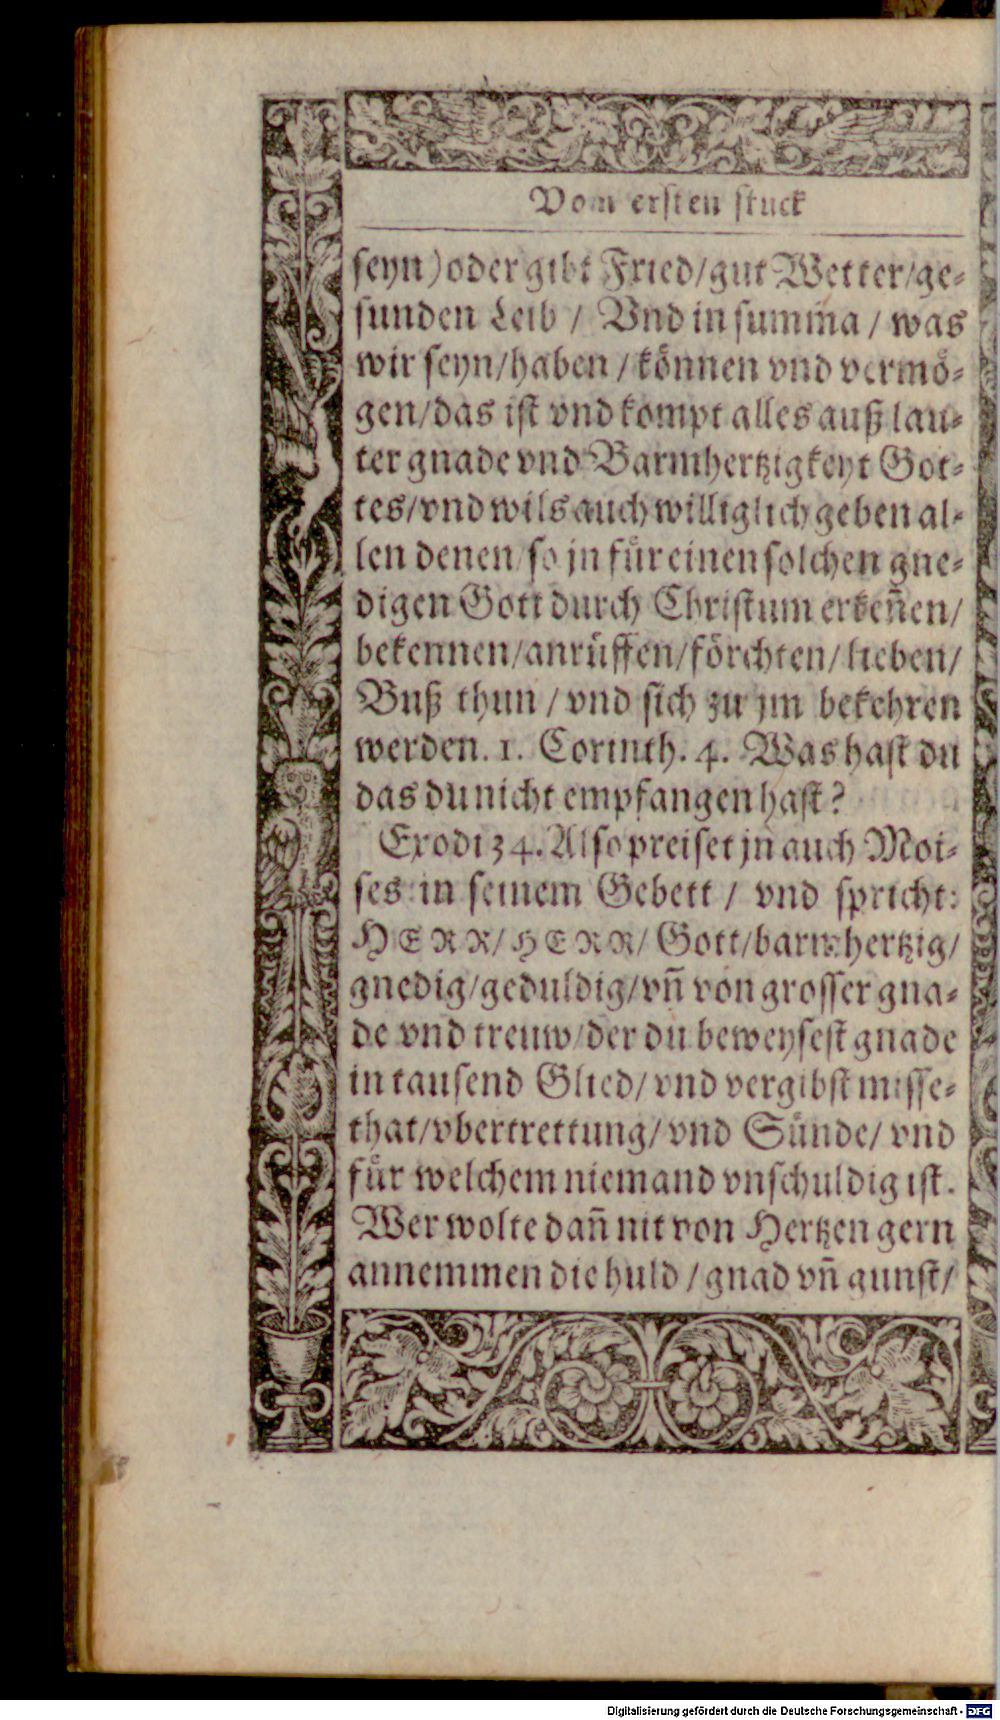 Vom ersten stuck
seyn) oder gibt Fried/gut Wetter/ge-
sunden Leib / Vnd in sum̃a / was
wir seyn/haben / können vnd vermö-
gen/das ist vnd kompt alles auß lau-
ter gnade vnd Barmhertzigkeyt Got-
tes/vnd wils auch williglich geben al-
len denen/so jn für einen solchen gne-
digen Gott durch Christum erkeñen/
bekennen/anrüffen/förchten/lieben/
Buß thun / vnd sich zu jm bekehren
werden. 1. Corinth. 4. Was hast du
das du nicht empfangen hast?
Exodi 34. Also preiset jn auch Moi-
ses in seinem Gebett / vnd spricht:
HERR/HERR/ Gott/barmhertzig/
gnedig/geduldig/vñ von grosser gna-
de vnd treuw/der du beweysest gnade
in tausend Glied/vnd vergibst misse-
that/vbertrettung/vnd Sünde/ vnd
für welchem niemand vnschuldig ist.
Wer wolte dañ nit von Hertzen gern
annemmen die huld / gnad vñ gunst/
Digitalisierung gefördert durch die Deutsche Forschungsgemeinschaft - DFG